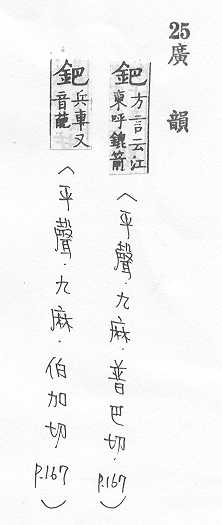 25 廣韻
鈀 方言云江
東呼鎞箭
〈平聲.九麻.普巴切.p.167〉
鈀 兵車又
音葩
〈平聲.九麻.伯加切.p.167〉